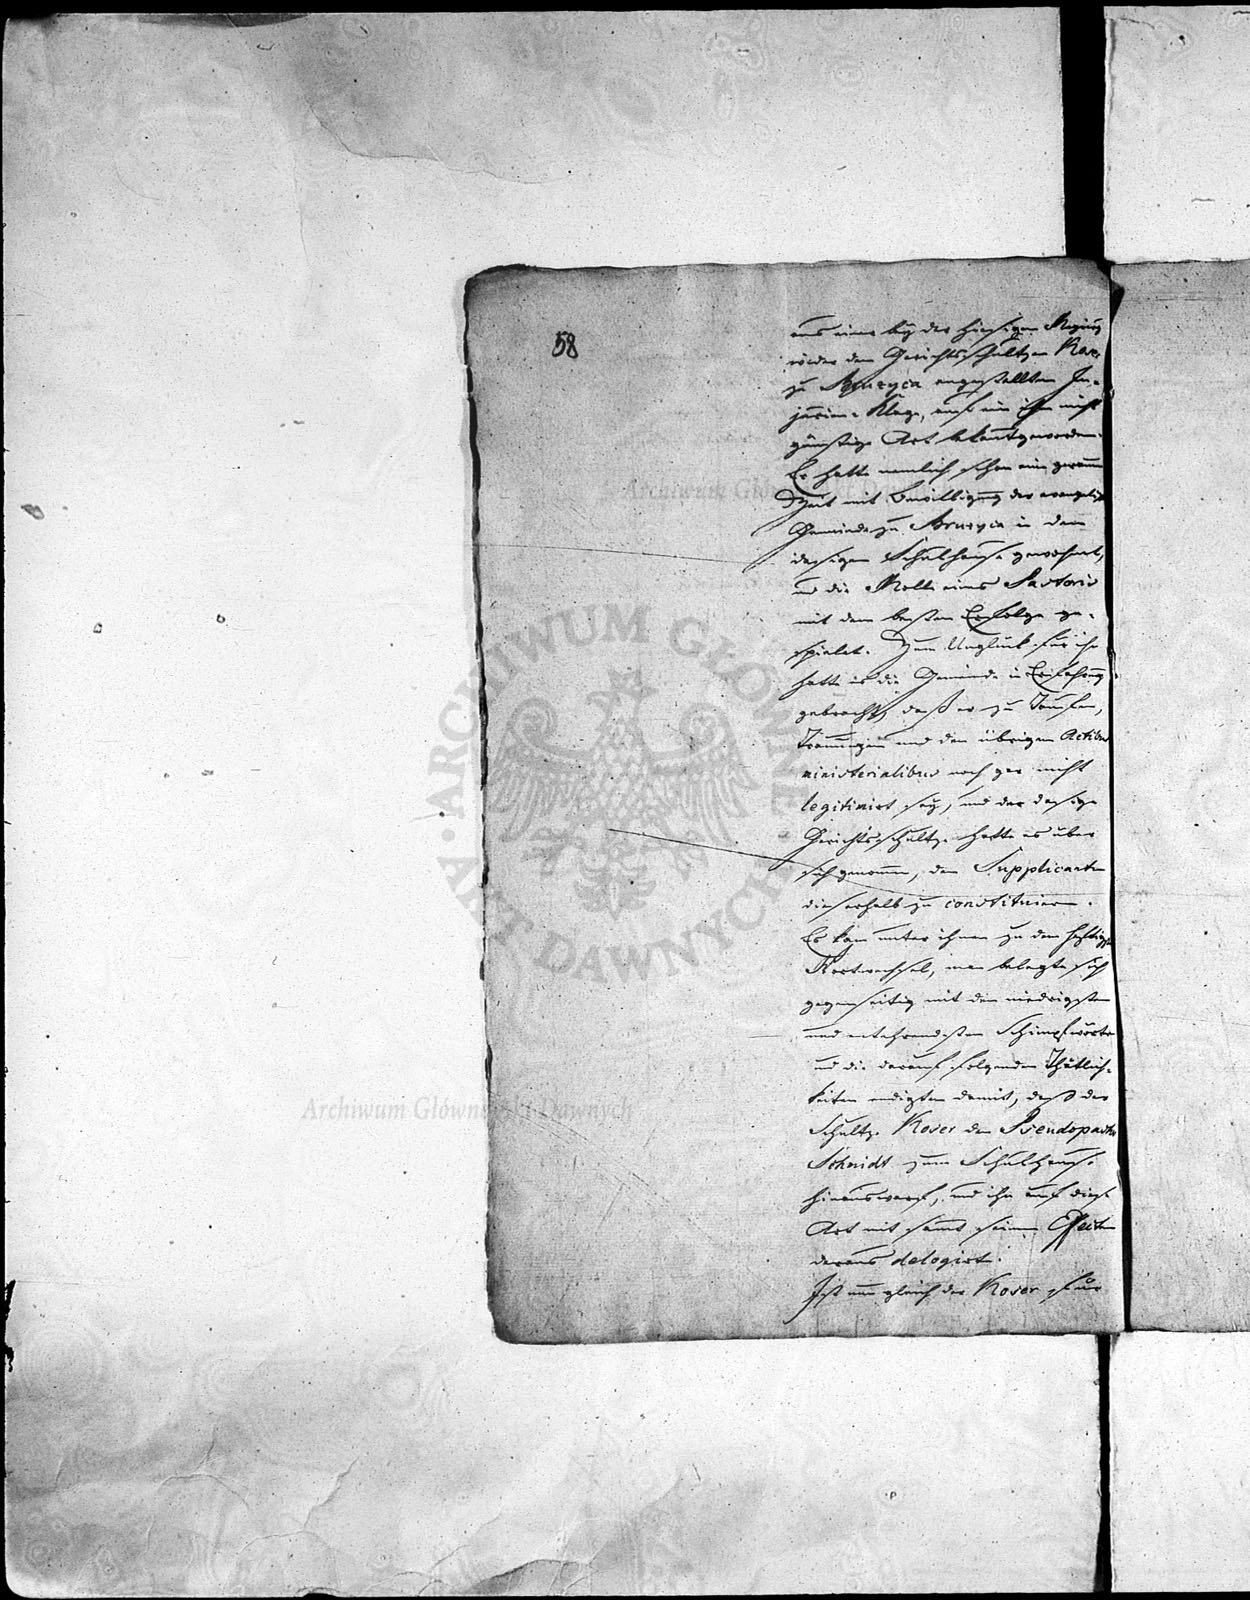 58
aus einer bey der hiesigen Regirung
wieder den Gerichtsschultzen Koser
zu Bruryca angestellten In-
jurien-Klage, auf eine ihm nicht
günstige Art bekannt geworden.
Er hatte nemlich schon eine geraume
Zeit mit Bewilligung der evangelischen
Gemeinde zu Bruryca in dem
dasigen Schulhause gewohnet,
und die Rolle eines Pastoris
mit dem besten Erfolge ge-
spielet. Zum Unglück für ihn
hatte es die Gemeinde in Erfahrung
gebracht, daß er zu Taufen,
Trauungen und den übrigen Actibus
ministerialibus noch gar nicht
legitimirt sey, und der dasige
Gerichtsschultze hatte es über
sich genommen, den Supplicanten
dieserhalb zu constituiren.
Es kam unter ihnen zu dem heftigsten
Wortwechsel, man belegte sich
gegenseitig mit den niedrigsten
und entehrendsten Schimpfwörtern
und die darauf folgenden Thätlich-
keiten endigten damit, daß der
Schultze Koser den Pseudopastor
Schmidt zum Schulhause
hinauswarf, und ihn auf diese
Art mit samt seinen Effecten
daraus delogirt.
Ist nun gleich der Koser für
Archiwum Główne Akt Dawnych